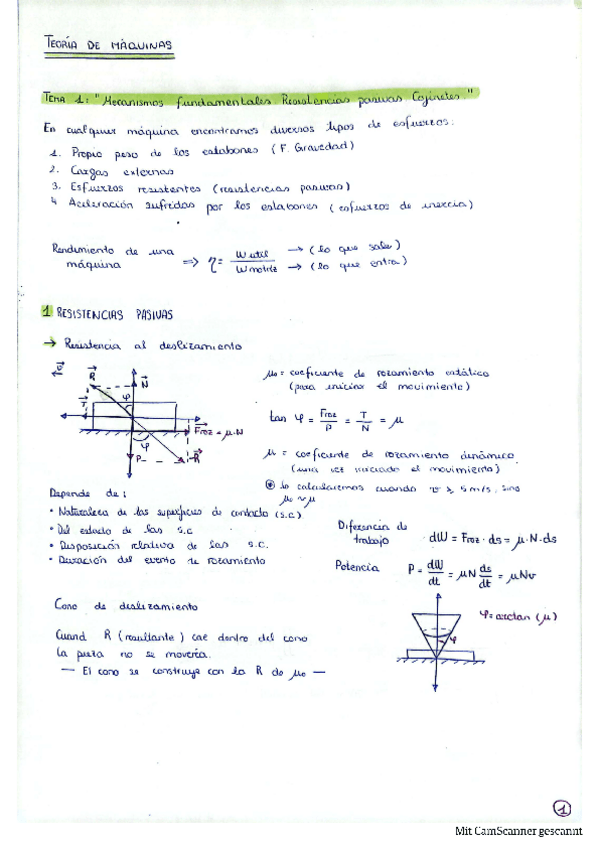 TEORÍA DE MÁQUINAS
TEMA 1: "Mecanismos fundamentales. Resistencias pasivas. Cojinetes."
En cualquier máquina encontramos diversos tipos de esfuerzos:
1. Propio peso de los eslabones (F. Gravedad)
2. Cargas externas
3. Esfuerzos resistentes (resistencias pasivas)
4 Aceleración sufridas por los eslabones (esfuerzos de inercia)
Rendimiento de una máquina ⇒ η = W útil / W motriz
→ (lo que sale)
→ (lo que entra)
1 RESISTENCIAS PASIVAS
→ Resistencia al deslizamiento
v R N φ T
Froz = μ·N
φ P R
μ₀ = coeficiente de rozamiento estático
(para iniciar el movimiento)
tan φ = Froz / P = T / N = μ
μ = coeficiente de rozamiento dinámico
(una vez iniciado el movimiento)
lo calcularemos cuando v ≥ 5 m/s, sino
μ₀ ~ μ
Depende de:
• Naturaleza de las superficies de contacto (s.c)
• Del estado de las s.c
• Disposición relativa de las s.c.
• Duración del evento de rozamiento
Diferencia de trabajo dW = Froz · ds = μ·N·ds
Potencia P = dW/dt = μN ds/dt = μNv
Cono de deslizamiento
Cuand R (resultante) cae dentro del cono
la pieza no se movería.
— El cono se construye con la R de μ₀ —
φ = arctan (μ)
φ
1
Mit CamScanner gescannt